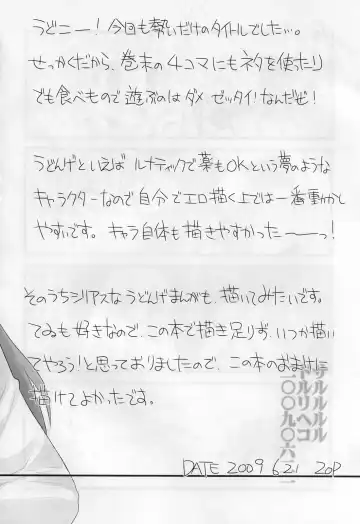 うどニー！今回も勢いだけのタイトルでした…。
せっかくだから、巻末の4コマにもネタを使ったり
でも食べもので遊ぶのはダメ ゼッタイ！なんだぜ！
うどんげといえば ルナティックで薬もOKという夢のような
キャラクターなので自分でエロ描く上では一番動かし
やすいです。キャラ自体も描きやすかったーーっ！
そのうちシリアスなうどんげまんがも、描いてみたいです。
てゐも好きなので、この本で描き足りず、いつか描い
てやろう！と思っておりましたので、この本のおまけに
描けてよかったです。
DATE 2009 6.21 20P